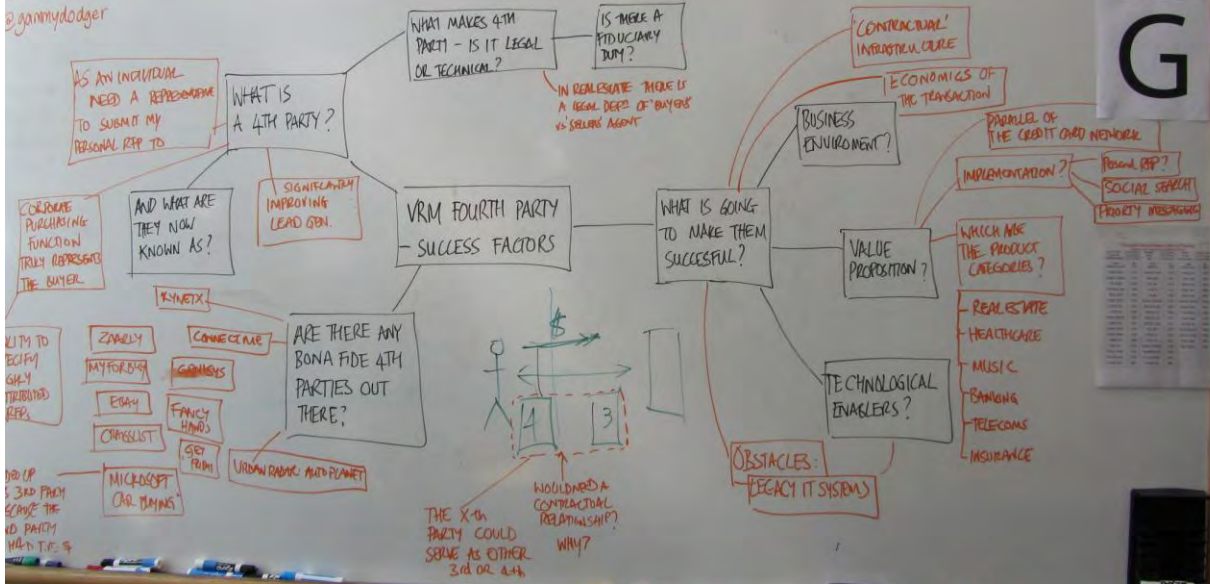 @gammydodger
AS AN INDIVIDUAL
NEED A REPRESENTATIVE
TO SUBMIT MY
PERSONAL RFP TO
WHAT IS
A 4TH PARTY?
WHAT MAKES 4TH
PARTY - IS IT LEGAL
OR TECHNICAL?
IS THERE A
FIDUCIARY
DUTY?
IN REAL ESTATE THERE IS
A LEGAL DEF OF 'BUYERS'
VS 'SELLERS' AGENT
CORPORATE
PURCHASING
FUNCTION
TRULY REPRESENTS
THE BUYER
AND WHAT ARE
THEY NOW
KNOWN AS?
SIGNIFICANTLY
IMPROVING
LEAD GEN.
VRM FOURTH PARTY
- SUCCESS FACTORS
ARE THERE ANY
BONA FIDE 4TH
PARTIES OUT
THERE?
KYNETX
CONNECT.ME
ZAARLY
EBAY
CRAIGSLIST
MICROSOFT
CAR BUYING
FANCY
HANDS
URBAN RADAR: AUTO PLANET
3RD PARTY
THE
PARTY
$
4
3
THE X-th
PARTY COULD
SERVE AS EITHER
3rd OR 4th
WOULD NEED A
CONTRACTUAL
RELATIONSHIP?
WHY?
WHAT IS GOING
TO MAKE THEM
SUCCESFUL?
'CONTRACTUAL'
INFRASTRUCTURE
ECONOMICS OF
THE TRANSACTION
BUSINESS
ENVIROMENT?
PARALLEL OF
THE CREDIT CARD NETWORK
IMPLEMENTATION?
Personal RFP?
SOCIAL SEARCH
PRIORTY MESSAGING
VALUE
PROPOSITION?
WHICH ARE
THE PRODUCT
CATEGORIES?
REAL ESTATE
HEALTHCARE
MUSIC
BANKING
TELECOMS
INSURANCE
TECHNOLOGICAL
ENABLERS?
OBSTACLES:
LEGACY IT SYSTEMS
G